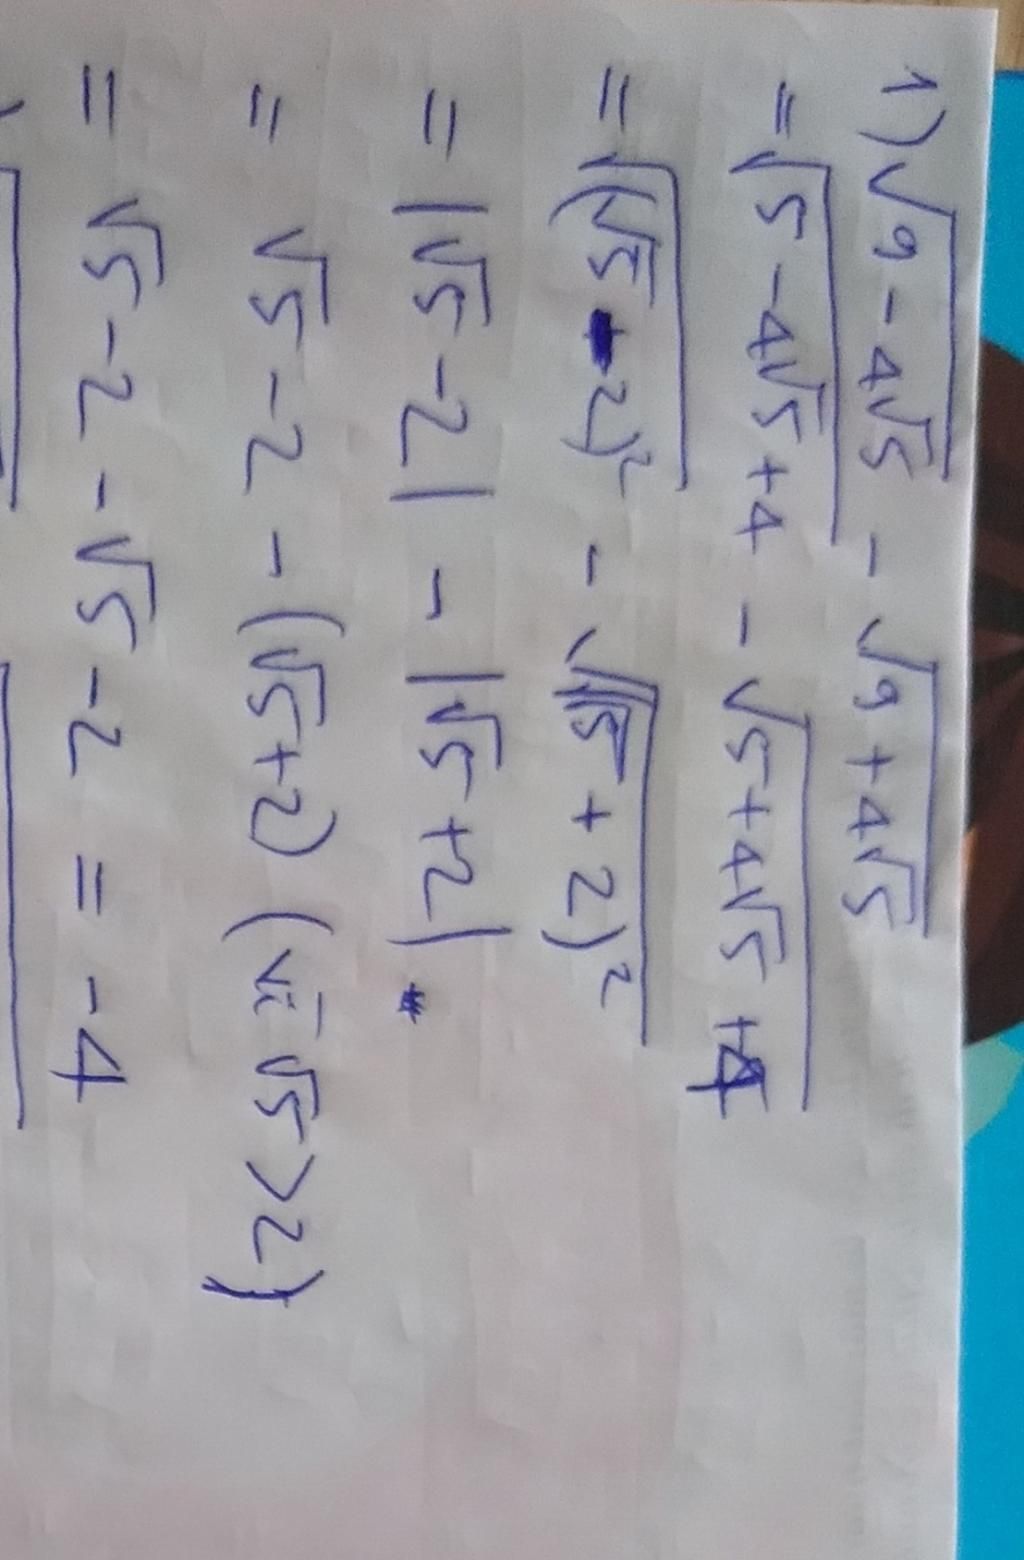 1) √(9 - 4√5) - √(9 + 4√5)
= √(5 - 4√5 + 4) - √(5 + 4√5 + 4)
= √((√5 - 2)²) - √((√5 + 2)²)
= |√5 - 2| - |√5 + 2|
= √5 - 2 - (√5 + 2) (vì √5 > 2)
= √5 - 2 - √5 - 2 = -4